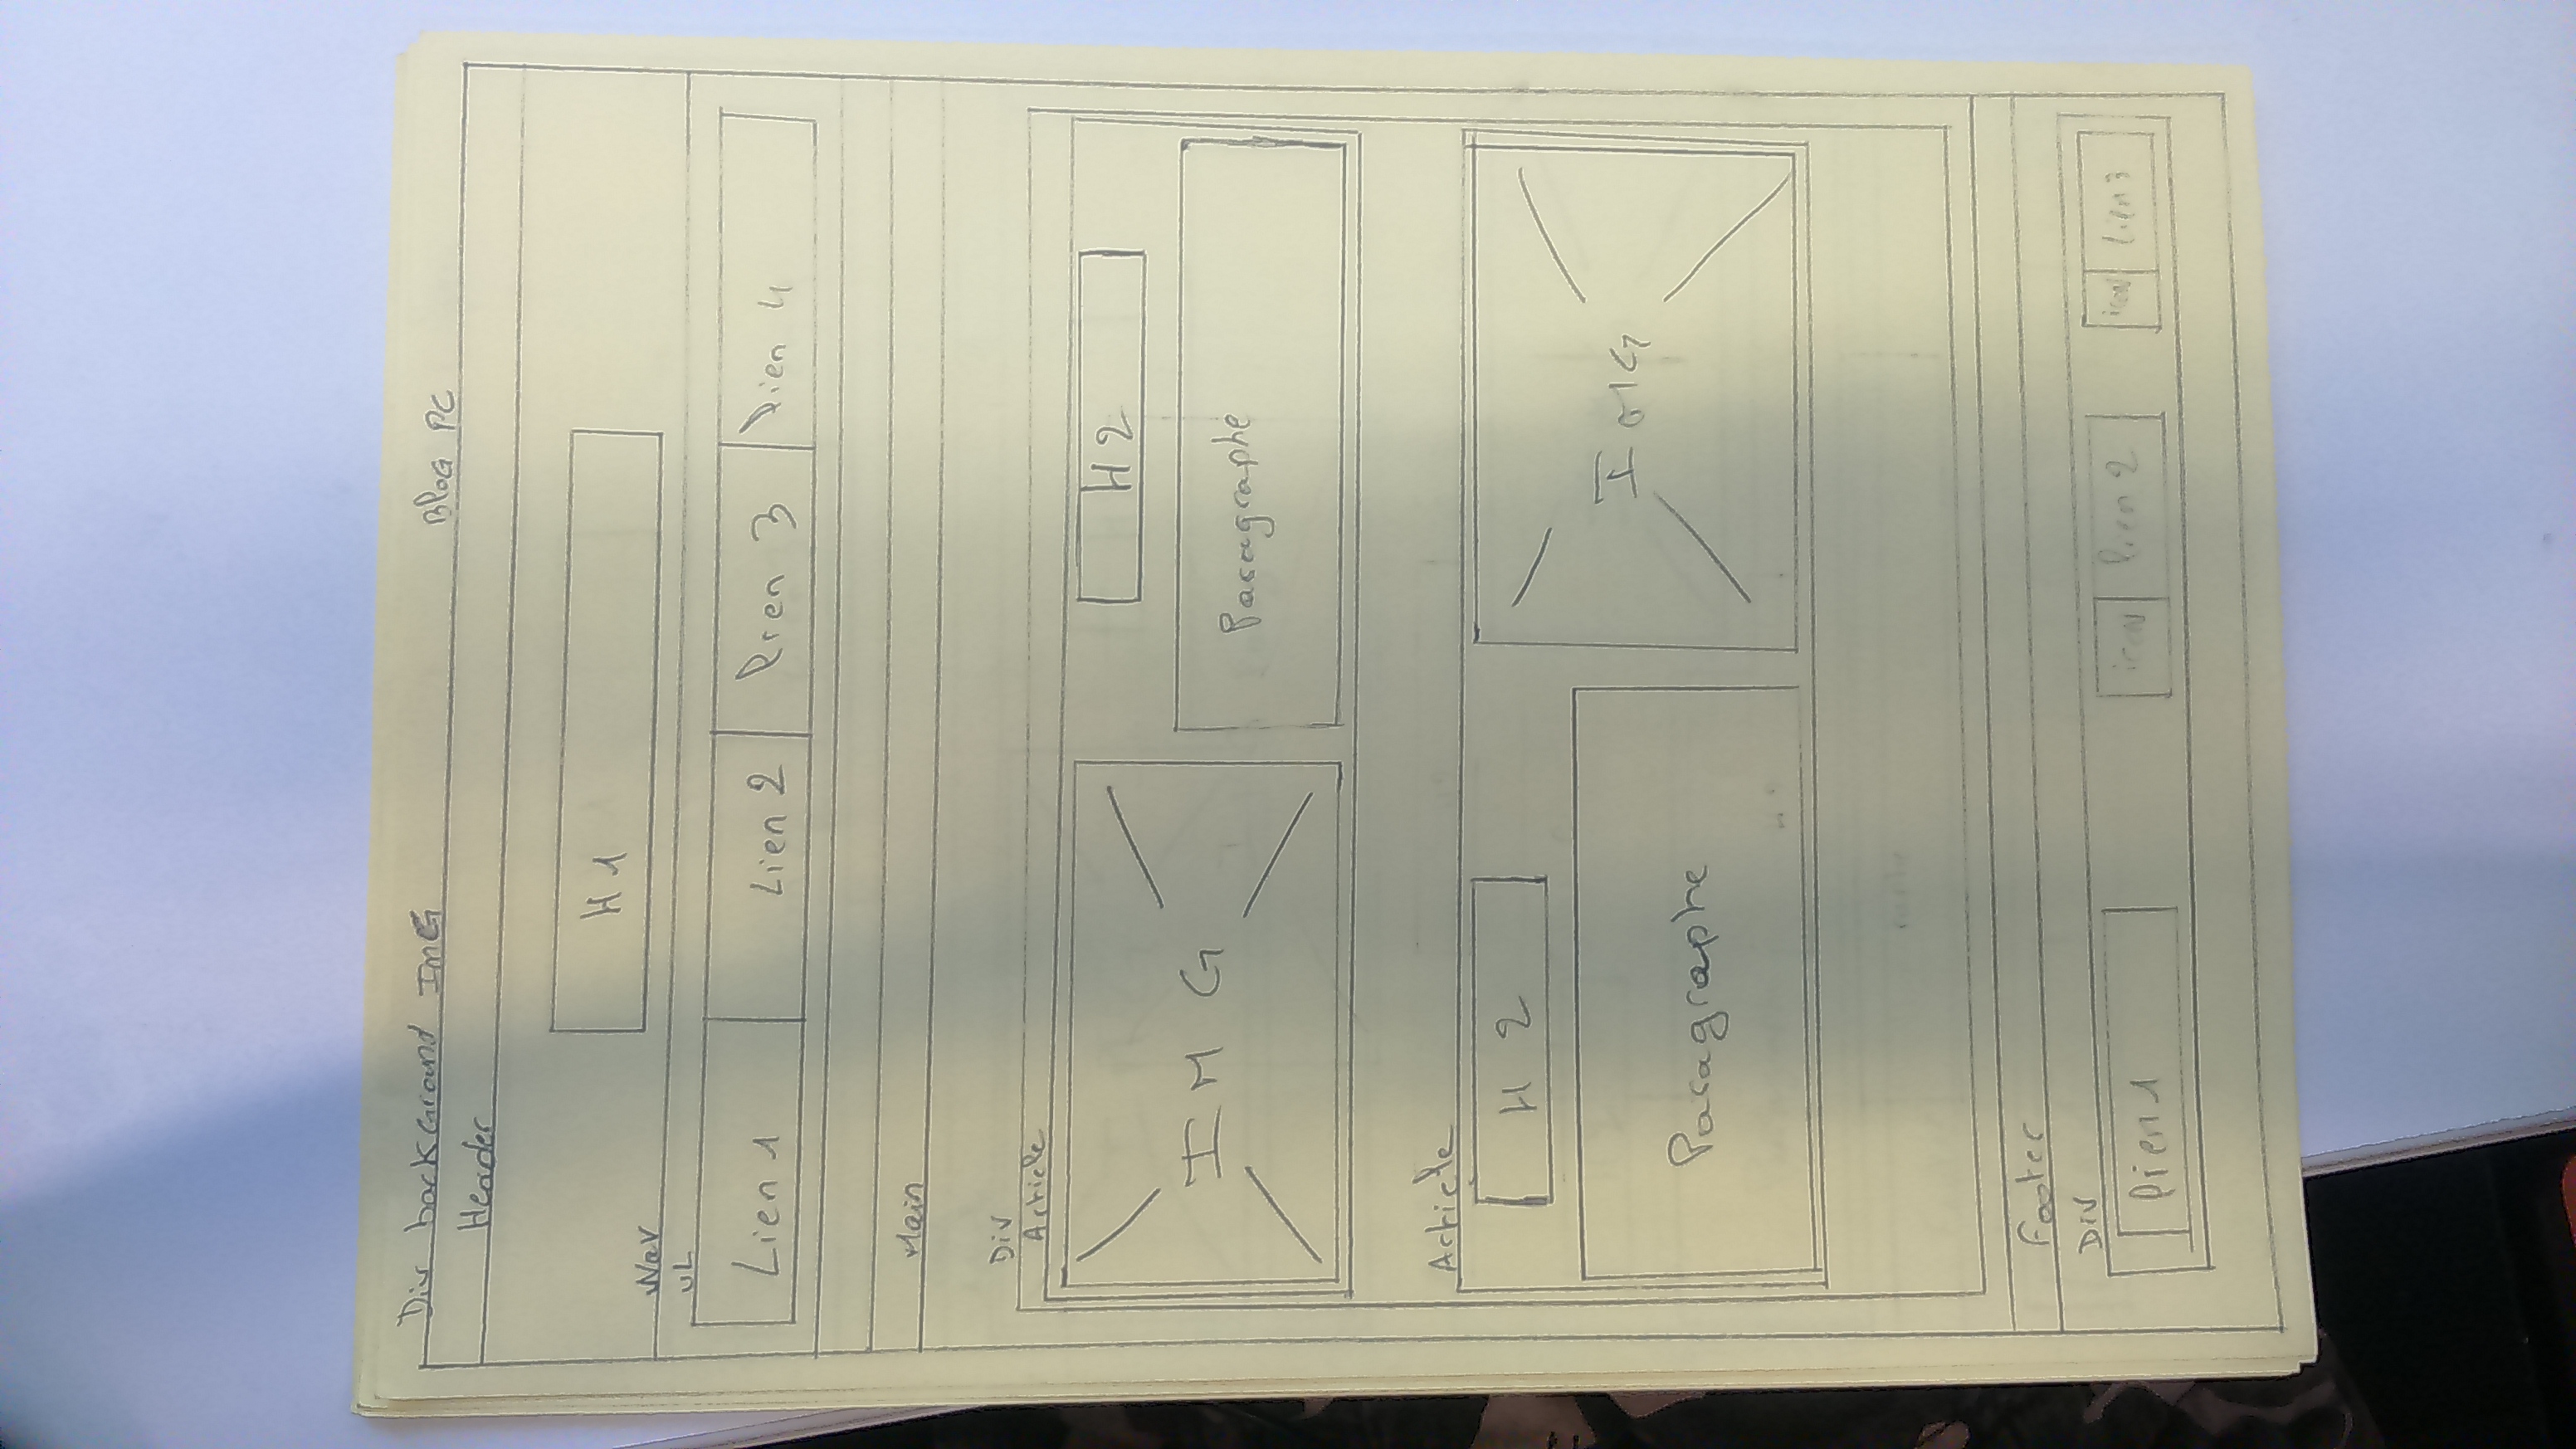 Div background ImG
Blog PC
Header
H1
Nav
UL
Lien 1 Lien 2 Lien 3 Lien 4
Main
Div
Article
IMG H2
Paragraphe
Article
H 2
IMG
Paragraphe
Footer
Div
Lien 1 icon Lien 2 icon Lien 3